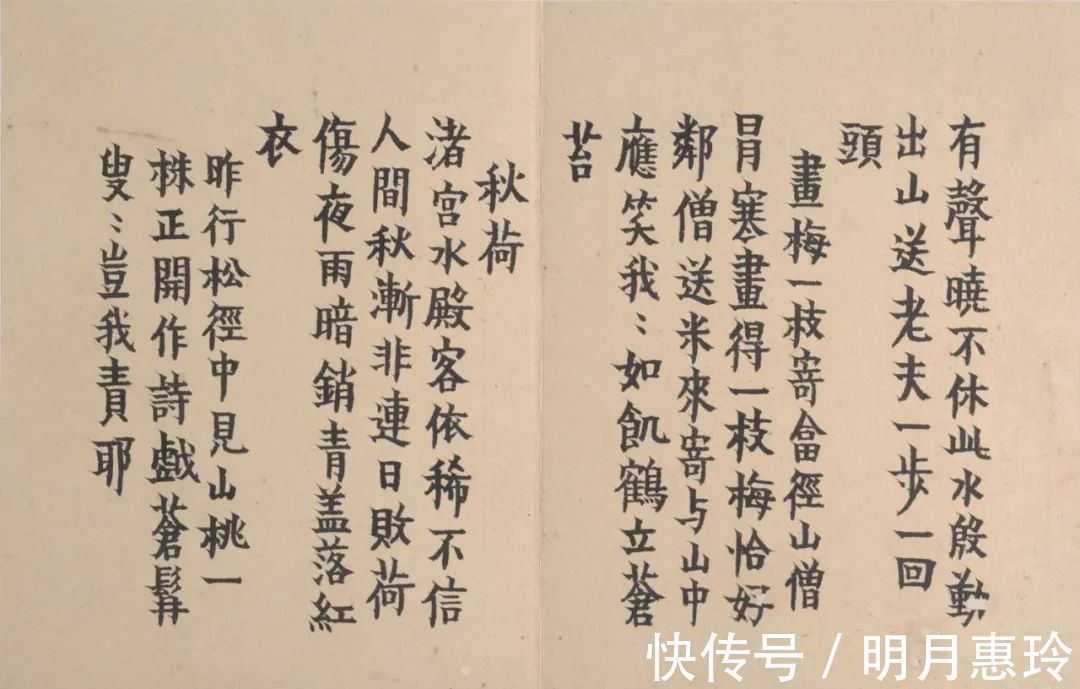 有聲曉不休此水殷勤
出山送老夫一步一回
頭
畫梅一枝寄畣徑山僧
冒寒畫得一枝梅恰好
鄰僧送米來寄与山中
應笑我：如飢鶴立蒼
苔
秋荷
渚宮水殿客依稀不信
人間秋漸非連日敗荷
傷夜雨暗銷青盖落紅
衣
昨行松徑中見山桃一
株正開作詩戲蒼髯
叟：豈我責耶
快传号 / 明月惠玲